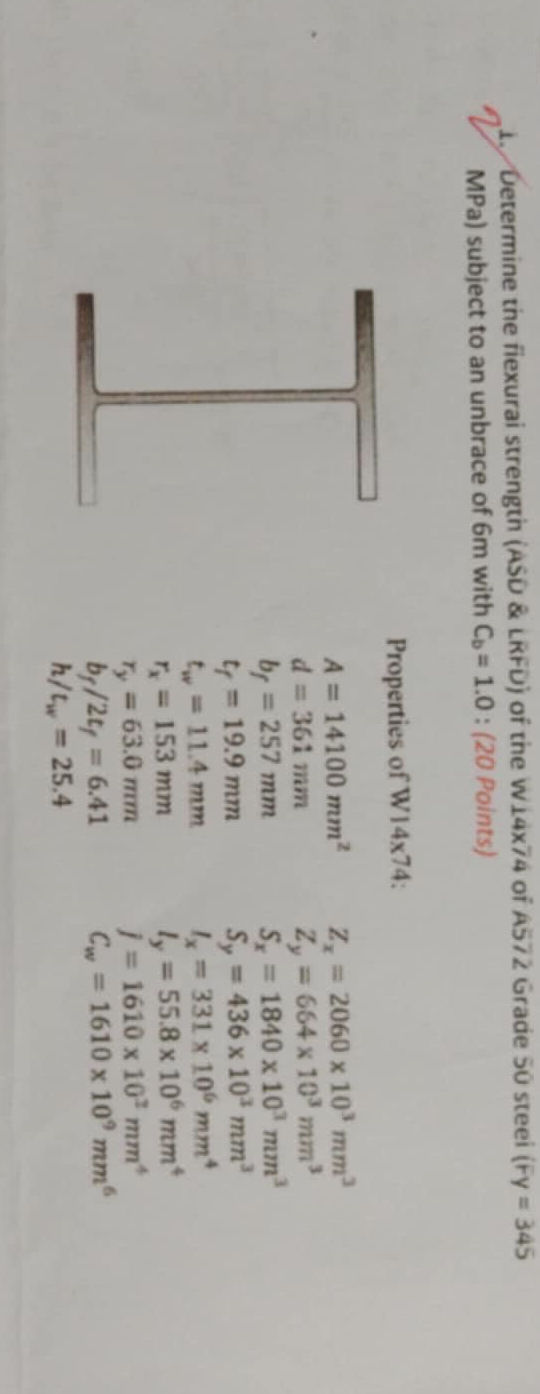 2 1. Determine the flexural strength (ASD & LRFD) of the W14x74 of A572 Grade 50 steel (Fy = 345
MPa) subject to an unbrace of 6m with C_b = 1.0 : (20 Points)
Properties of W14x74:
A = 14100 mm² Z_x = 2060 x 10³ mm³
d = 361 mm Z_y = 664 x 10³ mm³
b_f = 257 mm S_x = 1840 x 10³ mm³
t_f = 19.9 mm S_y = 436 x 10³ mm³
t_w = 11.4 mm I_x = 331 x 10⁶ mm⁴
r_x = 153 mm I_y = 55.8 x 10⁶ mm⁴
r_y = 63.0 mm J = 1610 x 10³ mm⁴
b_f/2t_f = 6.41 C_w = 1610 x 10⁹ mm⁶
h/t_w = 25.4